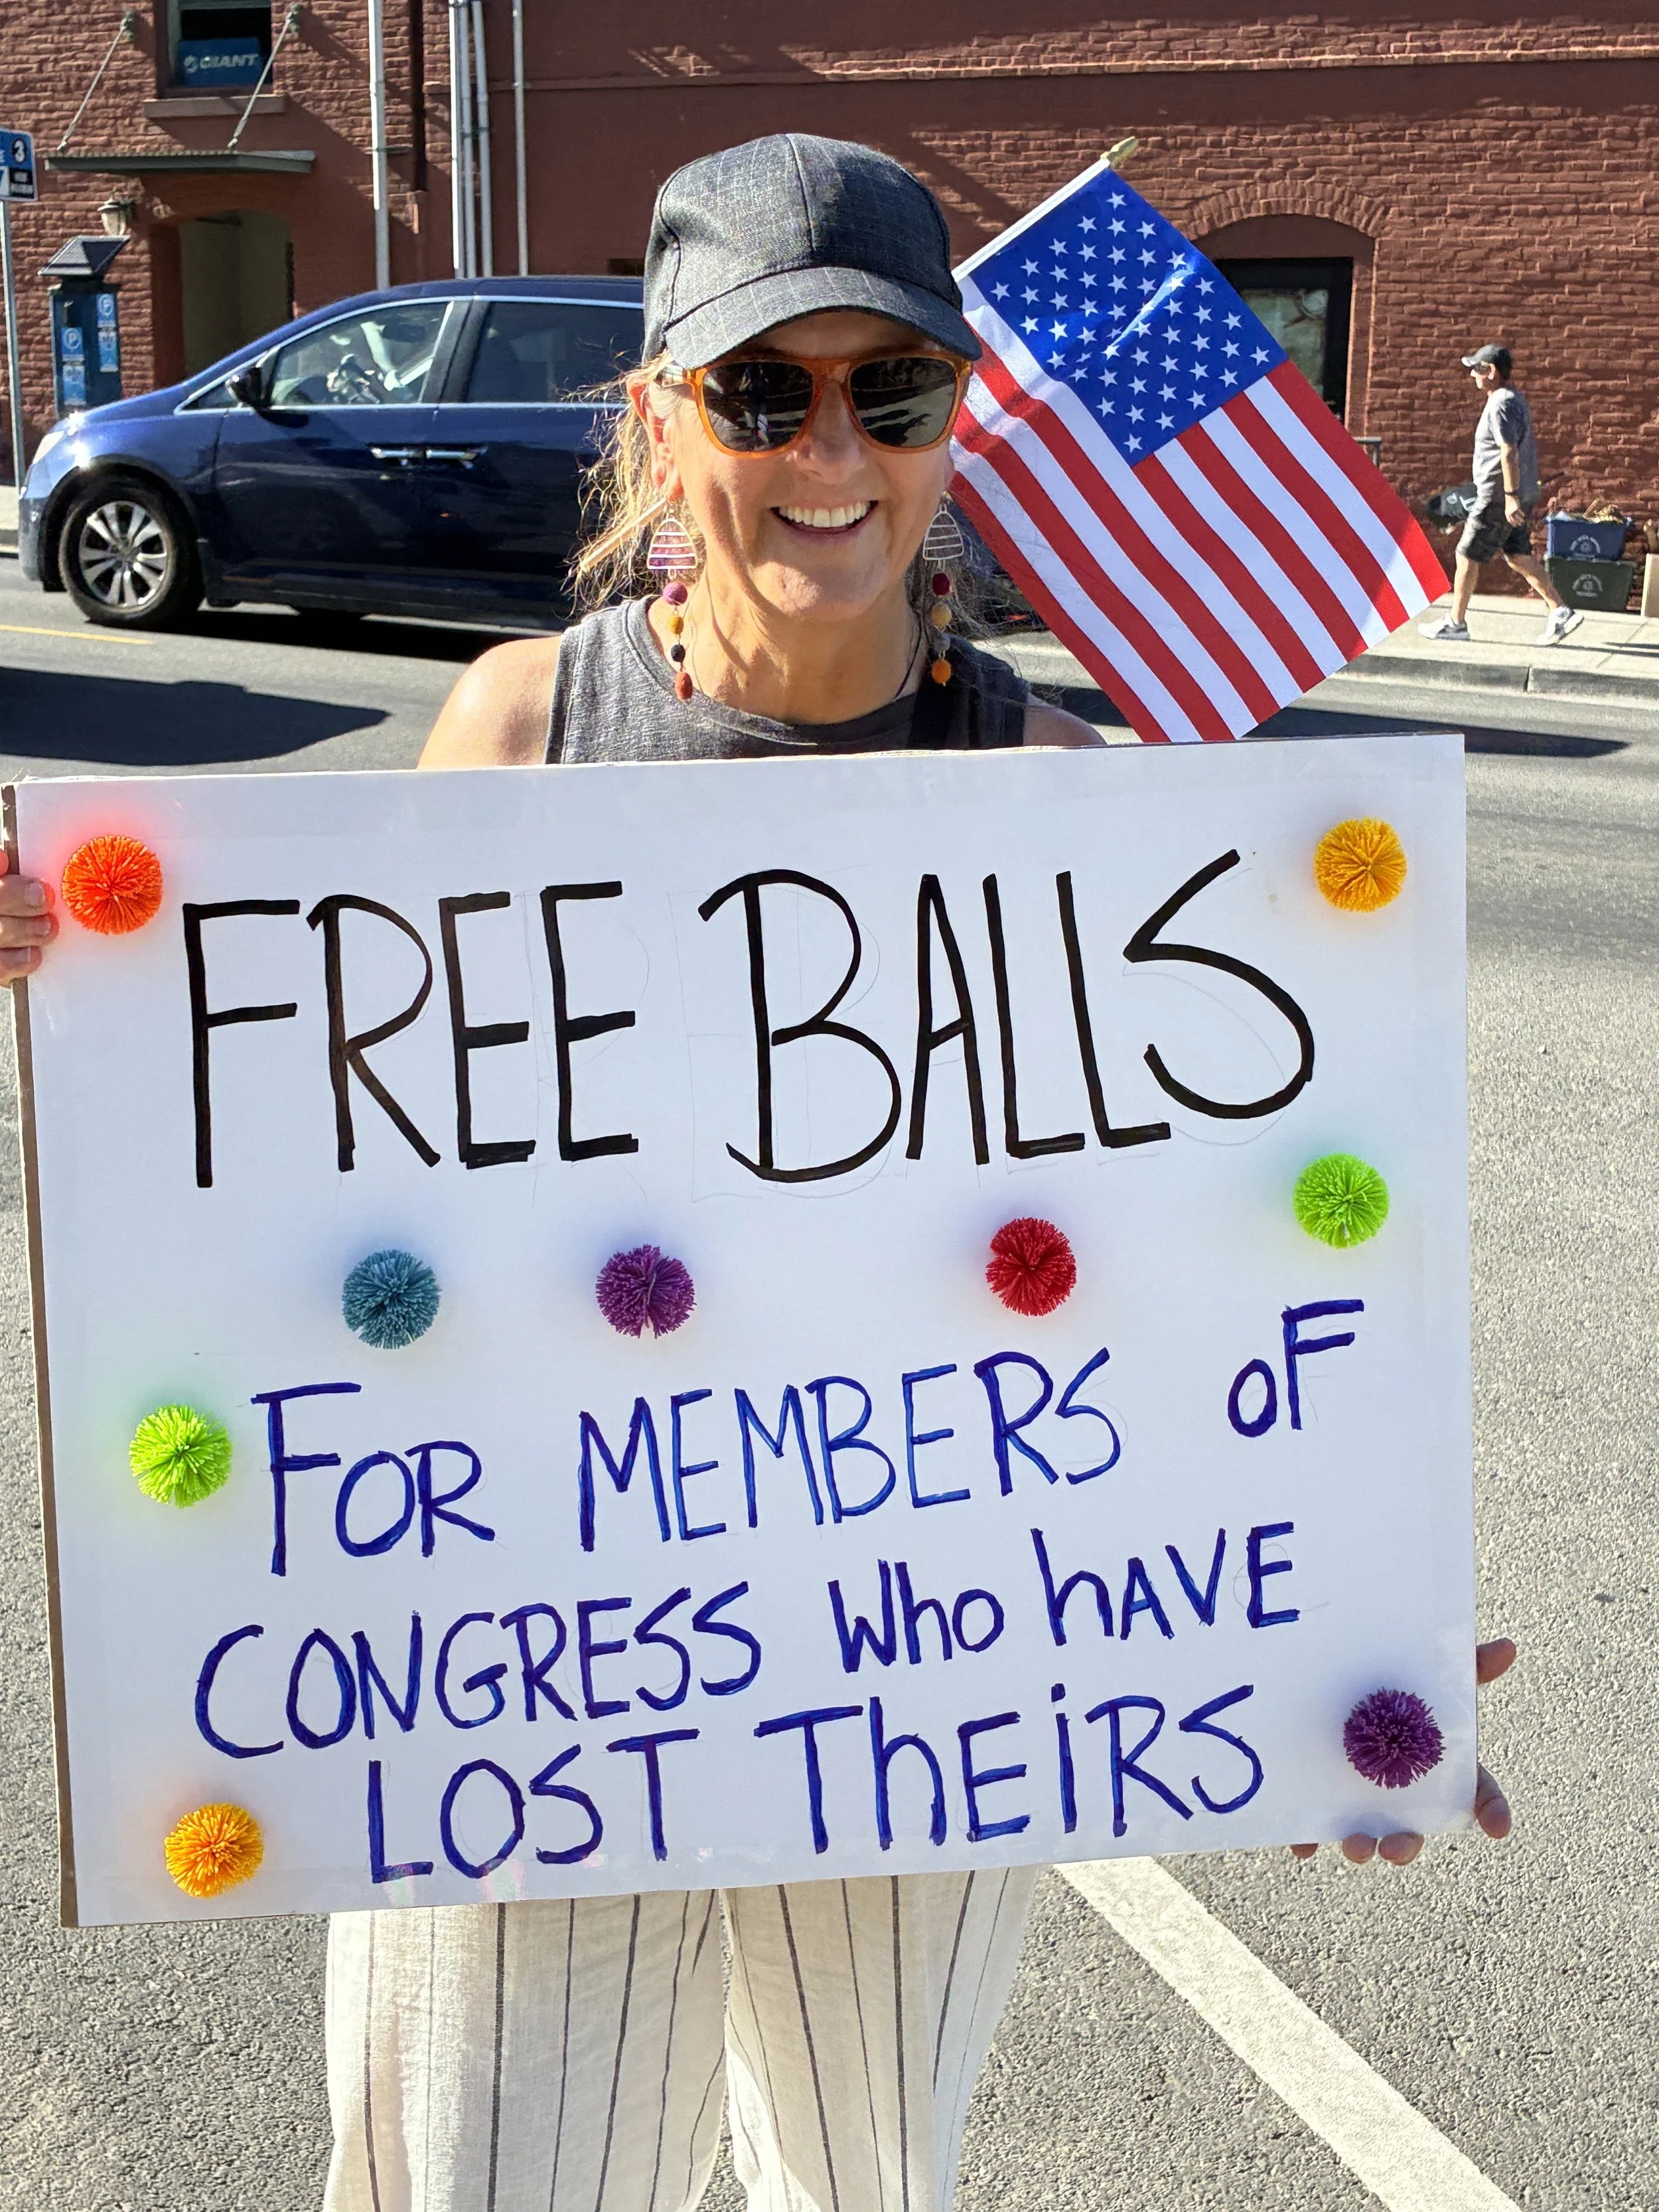 GIANT
3
P
FREE BALLS
FOR MEMBERS OF
CONGRESS Who hAVE
LOST ThEiRS